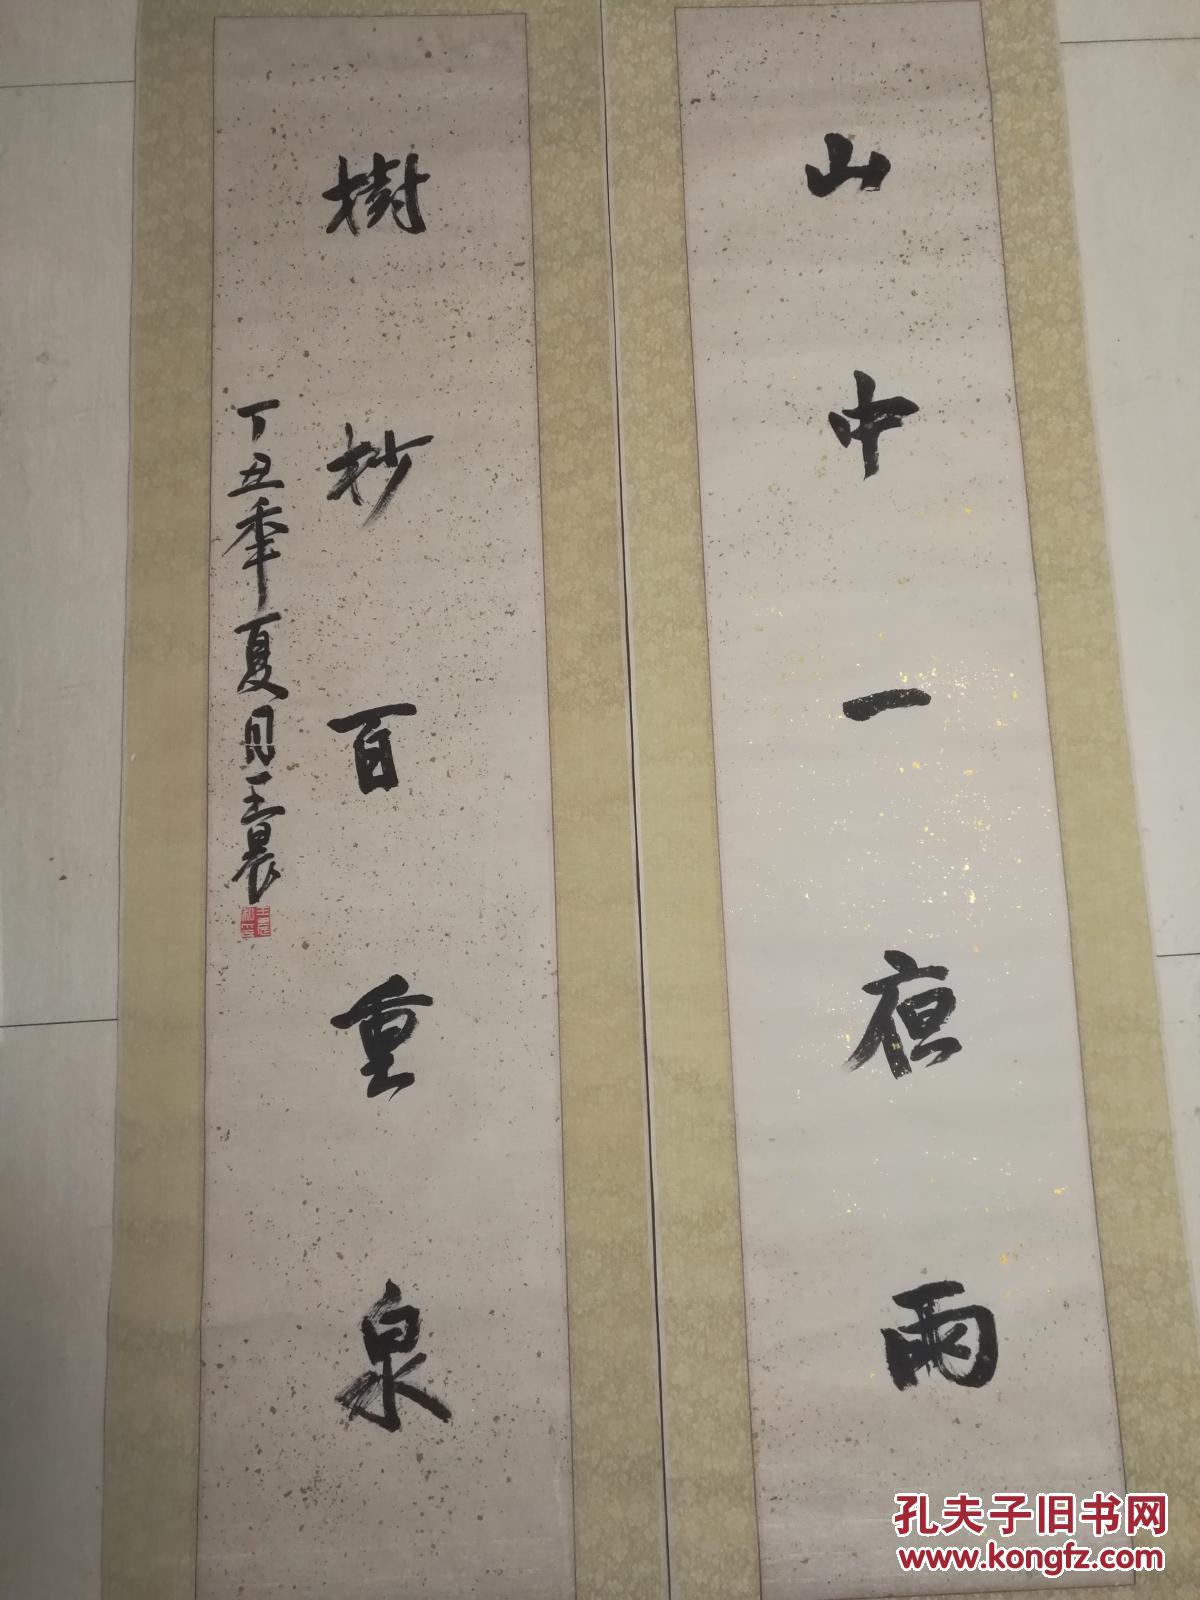 山中一夜雨
樹杪百重泉
丁丑年夏月王晨
孔夫子旧书网
www.kongfz.com